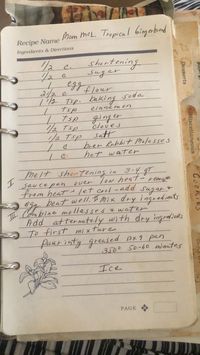 Recipe Name Mom McL. Tropical Gingerbread
Ingredients & Directions
1/2 c. shortening
1/2 c sugar
1 egg
2 1/2 c flour
1 1/2 Tsp. Baking Soda
1 Tsp cinnamon
1 Tsp ginger
1/2 Tsp cloves
1/2 Tsp Salt
1 c Brer Rabbit Molasses
1 c hot water
I Melt shortening in 3-4 qt
saucepan over low heat - remove
from heat - let cool - add sugar &
egg beat well. II Mix dry ingredients
III Combine mollasses & water
Add alternately with dry ingredients
To first mixture
Pour into greased 9x9 pan
350° 50-60 minutes
Ice
PAGE
Desserts